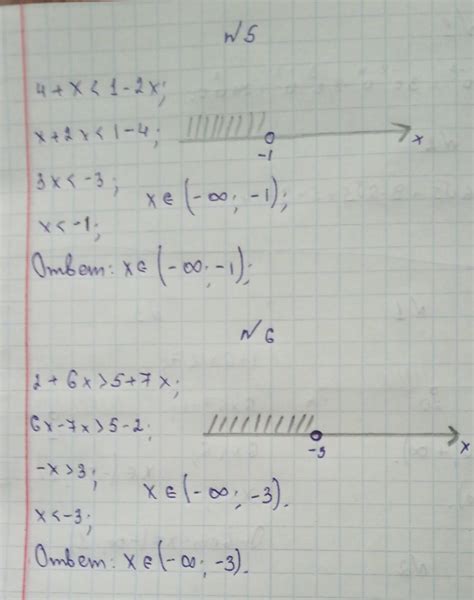 №5
4+x<1-2x;
x+2x<1-4;
x
-1
3x<-3;
x∈(-∞;-1);
x<-1;
Ответ: x∈(-∞;-1);
№6
2+6x>5+7x;
6x-7x>5-2;
x
-3
-x>3;
x∈(-∞;-3).
x<-3;
Ответ: x∈(-∞;-3).